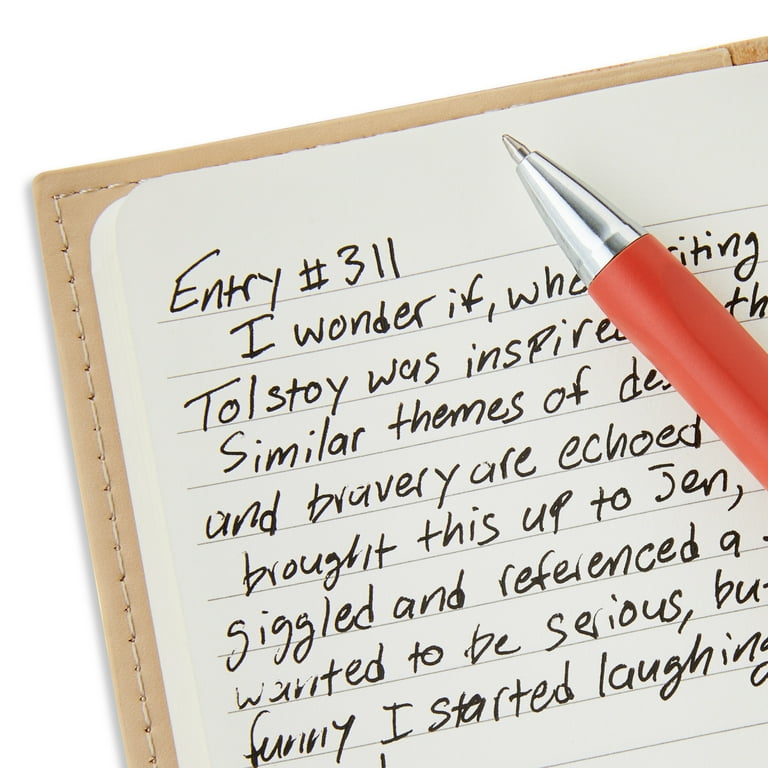 Entry #311
I wonder if, whe riting
Tolstoy was inspire th
Similar themes of des
and bravery are echoed
brought this up to Jen,
giggled and referenced a
wanted to be serious, but
funny I started laughing